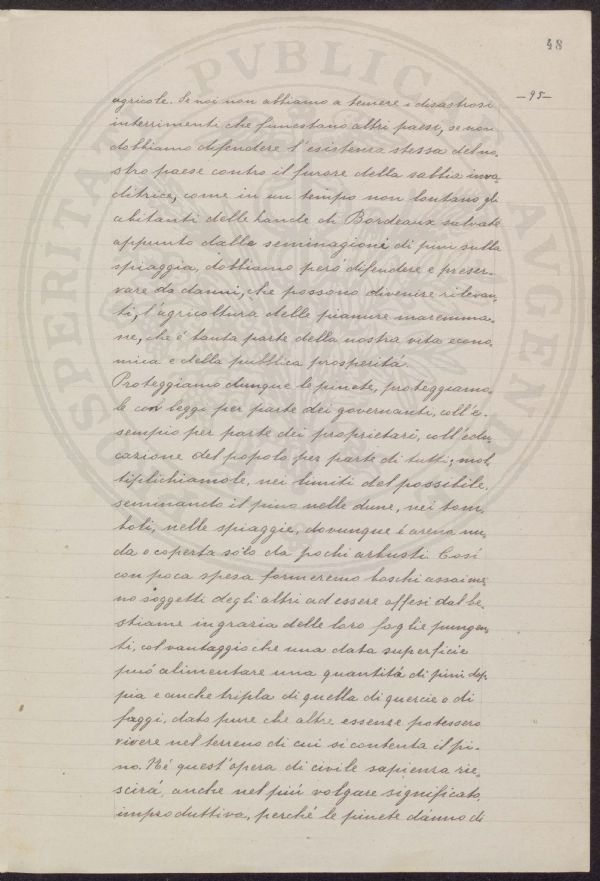 48
—95—
agricole. Se noi non abbiamo a temere i disastrosi
interrimenti che funestano altri paesi, se non
dobbiamo difendere l'esistenza stessa del no,
stro paese contro il furore della sabbia inva,
ditrice, come in un tempo non lontano gli
abitanti delle Lande di Bordeaux salvate
appunto dalle seminagioni di pini sulla
spiaggia, dobbiamo però difendere e preser-
vare da danni, che possono divenire rilevan,
ti, l'agricoltura delle pianure maremma,
ne, che è tanta parte della nostra vita econo,
mica e della pubblica prosperità.
Proteggiamo dunque le pinete, proteggiamo,
le con leggi per parte dei governanti, coll'e,
sempio per parte dei proprietari, coll'edu,
cazione del popolo per parte di tutti; mol,
tiplichiamole, nei limiti del possibile,
seminando il pino nelle dune, nei tom,
boli, nelle spiaggie, dovunque è arena nu,
da o coperta solo da pochi arbusti. Così
con poca spesa formeremo boschi assai me,
no soggetti degli altri ad essere offesi dal be,
stiame in grazia delle loro foglie pungen,
ti, col vantaggio che una data superficie
può alimentare una quantità di pini dop,
pia e anche tripla di quella di quercie o di
faggi, dato pure che altre essenze potessero
vivere nel terreno di cui si contenta il pi-
no. Nè quest'opera di civile sapienza rie,
scirà, anche nel più volgare significato,
improduttiva, perchè le pinete danno di
PVBLICAE AVGENDAE
PROSPERITATI